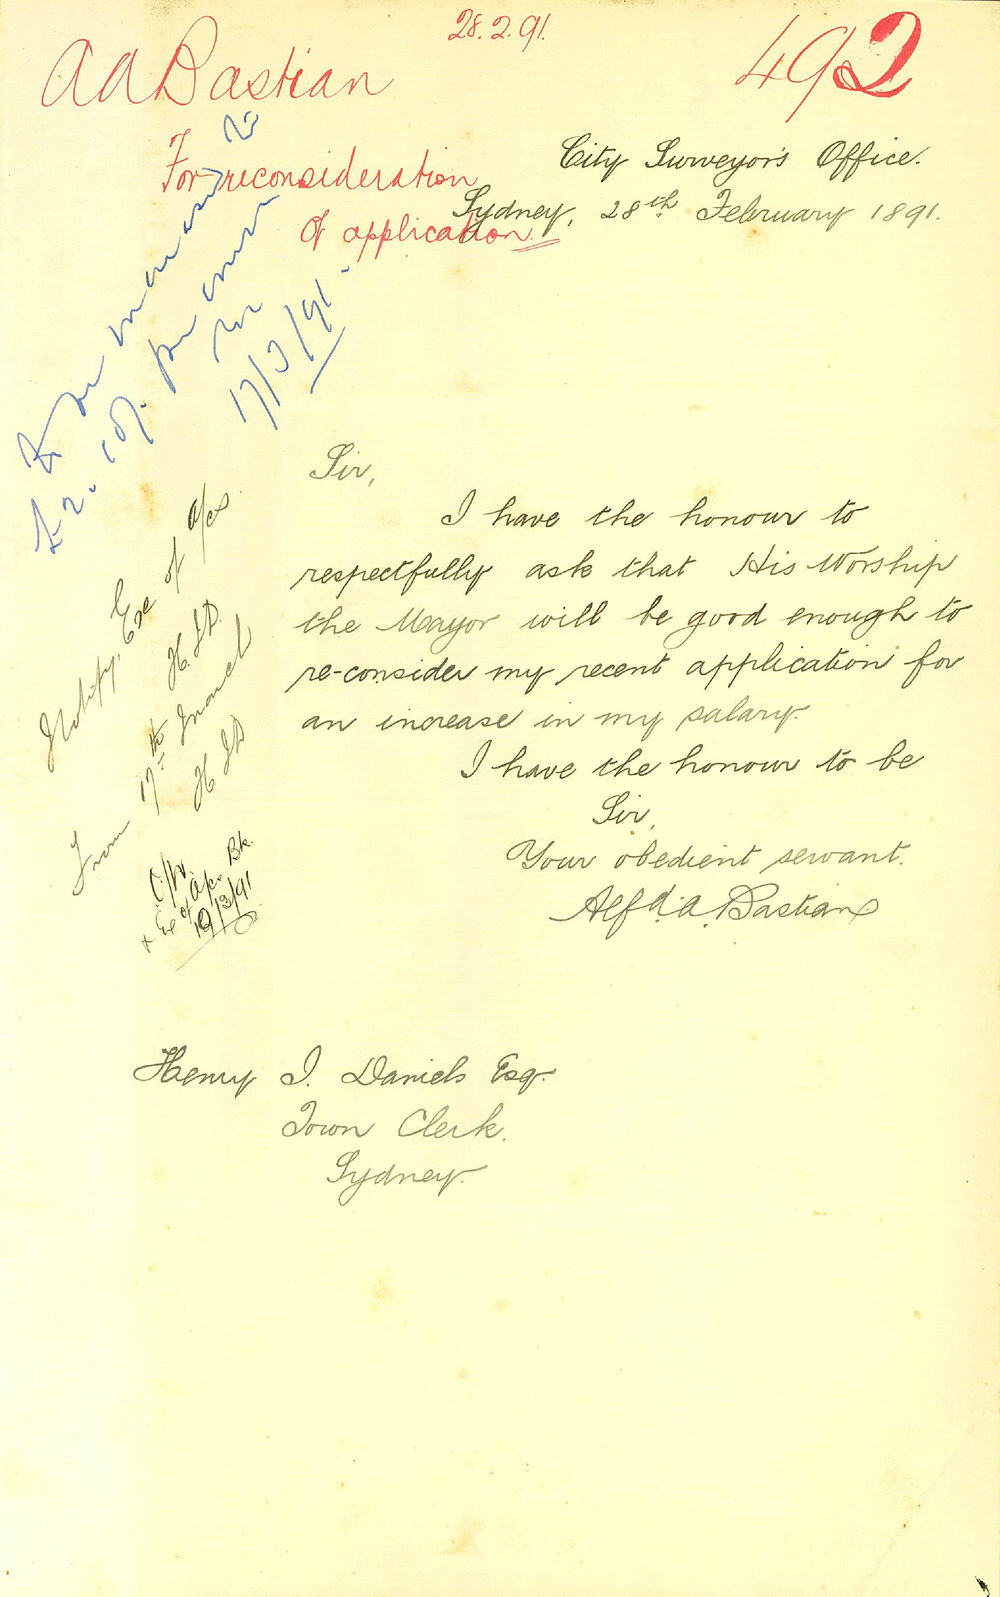 28.2.91.
492
A A Bastian
For reconsideration
of application.
City Surveyor's Office.
Sydney, 28th February 1891.
to
£2.10/. per
17/3/91.
Sir,
I have the honour to
respectfully ask that His Worship
the Mayor will be good enough to
re-consider my recent application for
an increase in my salary.
I have the honour to be
Sir,
Your obedient servant.
Alfd. A. Bastian
Notify. Exr of A/cs.
H. J. D.
From 17th March
H J D
19/3/91
Henry J. Daniels Esq.
Town Clerk.
Sydney.